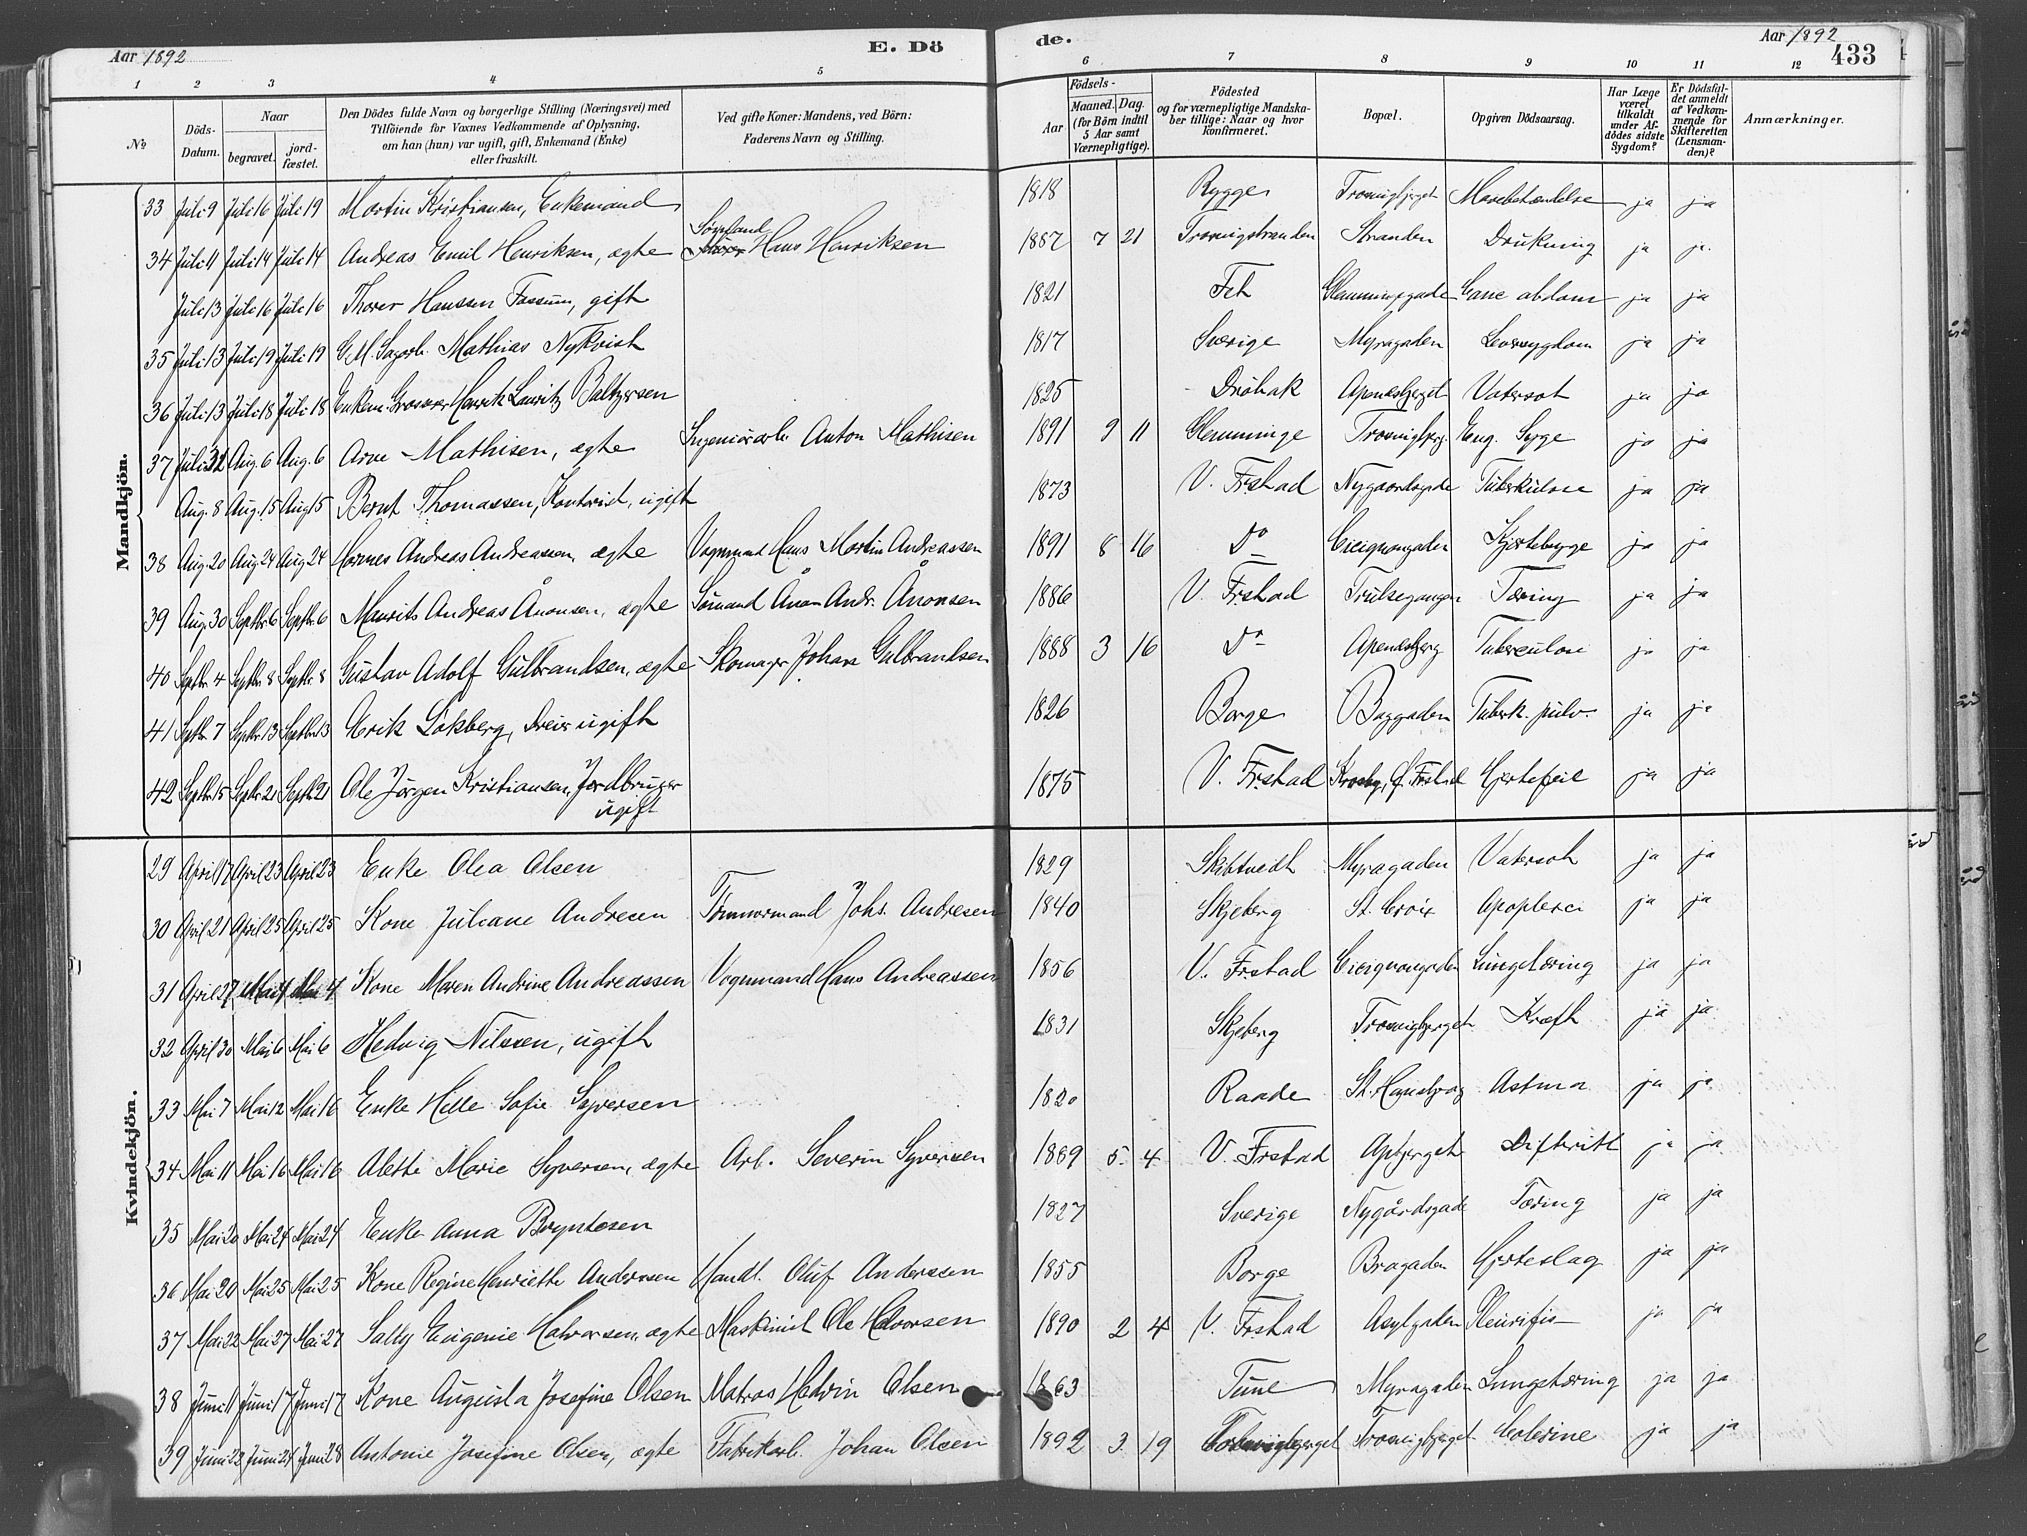 Aar 1892
E. Dö
de.
Aar 1892
433
1 2 3 4 5 6 7 8 9 10 11 12
No
Döds-Datum.
Naar
begravet.
jord-fæstet.
Den Dödes fulde Navn og borgerlige Stilling (Næringsvei) med
Tilföiende for Voxnes Vedkommende af Oplysning,
om han (hun) var ugift, gift, Enkemand (Enke)
eller fraskilt.
Ved gifte Koner: Mandens, ved Börn:
Faderens Navn og Stilling.
Födsels-
Aar
Maaned. Dag.
(for Börn indtil
5 Aar samt
Værnepligtige).
Födested
og for værnepligtige Mandska-
ber tillige: Naar og hvor
konfirmeret.
Bopæl.
Opgiven Dödsaarsag.
Har Læge
været
tilkaldt
under Af-
dödes sidste
Sygdom?
Er Dödsfal-
det anmeldt
af Vedkom-
mende for
Skifteretten
(Lensman-
den)?
Anmærkninger.
Mandkjön.
33 Juli 9 Juli 16 Juli 19 Martin Kristiansen, Enkemand 1818 Rygge Trosvigbjerget Mavebetændelse ja ja
Sømand
34 Juli 11 Juli 14 Juli 14 Andreas Emil Henriksen, ægte Hans Henriksen 1887 7 21 Trosvigstranden Stranden Drukning ja ja
Juli 13 Juli 16 Juli 16 Thorer Hanssen Fossum, gift 1821 Fet Glemmingegade Canc abdom ja ja
35 Juli 13 Juli 19 Juli 19 G.M. Sagarb. Mathias Nykvist 1817 Sverige Myragaden Leversygdom ja ja
36 Juli 13 Juli 18 Juli 18 Enkem. Henrik Lauritz Baltzersen 1825 Drøbak Apenesbjerget Vatersot ja ja
37 Juli 31 Aug. 6 Aug. 6 Arne Mathisen, ægte Anton Mathisen 1891 9 11 Glemminge Trosvigbjerg. Eng. Syge ja ja
Aug. 8 Aug. 15 Aug 15 Bernt Thomassen, Kontorist, ugift 1873 V. Frstad Nygaardsgade Tuberkulose ja ja
38 Aug 20 Aug 24 Aug 24 Andreas Andreassen, ægte Vognmand Hans Martin Andreassen 1891 8 16 Do Cicignongaden Hjertesyge ja ja
39 Aug 30 Septbr. 6 Septbr. 6 Maurits Andreas Ånonsen, ægte Sømand Ånon Andr. Ånonsen 1886 V. Frstad Trulsegangen Tæring ja ja
40 Septbr. 4 Septbr. 8 Septbr. 8 Gustav Adolf Gulbrandsen, ægte Skomager Johan Gulbrandsen 1888 3 16 Do Apenesbjerg Tuberculose ja ja
41 Septbr. 7 Septbr. 13 Septbr. 13 Erik Lökberg, Dreier ugift 1826 Borge Baggaden Tuberk. pulm. ja ja
42 Septbr. 15 Septbr. 21 Septbr. 21 Ole Jörgen Kristiansen, Jordbruger 1875 V. Frstad Hjertefeil ja ja
ugift
Kvindekjön.
29 April 17 April 23 April 23 Enke Olea Olsen 1829 Skibtvedt Myragaden Vatersot ja ja
30 April 21 April 25 April 25 Kone Juliane Andresen Tømmermand Johs. Andresen 1840 Skjeberg St. Croix Apoplexi ja ja
31 April 27 Mai 4 Mai 4 Kone Maren Andrine Andreassen Vognmand Hans Andreassen 1856 V. Frstad Cicignongaden Lungetæring ja ja
32 April 30 Mai 6 Mai 6 Hedvig Nilssen, ugift 1831 Skjeberg Trosvigbjerget Kræft ja ja
33 Mai 7 Mai 12 Mai 16 Enke Helle Sofie Syversen 1820 Raade St. Hansbjerg Astma ja ja
34 Mai 11 Mai 16 Mai 16 Alette Marie Syversen, ægte Arb. Severin Syversen 1889 5 4 V. Frstad Apbjerget Difterit ja ja
35 Mai 20 Mai 24 Mai 24 Enke Anna Bryntesen 1827 Sverige Nygårdsgade Tæring ja ja
36 Mai 20 Mai 25 Mai 25 Kone Regine Henriette Anderssen Handl. Oluf Anderssen 1855 Borge Bragaden Hjerteslag ja ja
37 Mai 22 Mai 27 Mai 27 Sally Eugenie Halvorsen, ægte Maskinist Ole Halvorsen 1890 2 4 V. Frstad Asylgaden Pleuritis ja ja
38 Juni 11 Juni 17 Juni 17 Kone Augusta Josefine Olsen Matros Hedvin Olsen 1863 Tune Myragaden Lungetæring ja ja
39 Juni 22 Juni 24 Juni 28 Antonie Josefine Olsen, ægte Fabrikarb. Johan Olsen 1892 3 19 Trosvigbjerget Trosvigbjerget Colerine ja ja